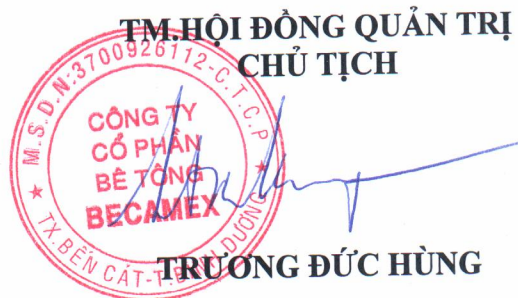 TM.HỘI ĐỒNG QUẢN TRỊ
CHỦ TỊCH
M.S.D.N:3700926112-C.T.C.P
CÔNG TY
CỔ PHẦN
BÊ TÔNG
BECAMEX
TX.BẾN CÁT-T.BÌNH DƯƠNG
TRƯƠNG ĐỨC HÙNG